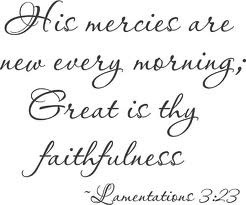 His mercies are
new every morning;
Great is thy
faithfulness
~Lamentations 3:23